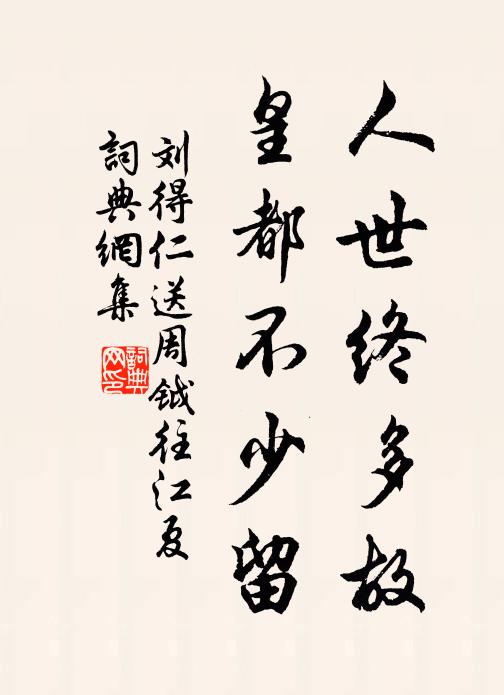 人世终多故
皇都不少留
刘得仁送周钺往江夏
詞典網集
詞典网印